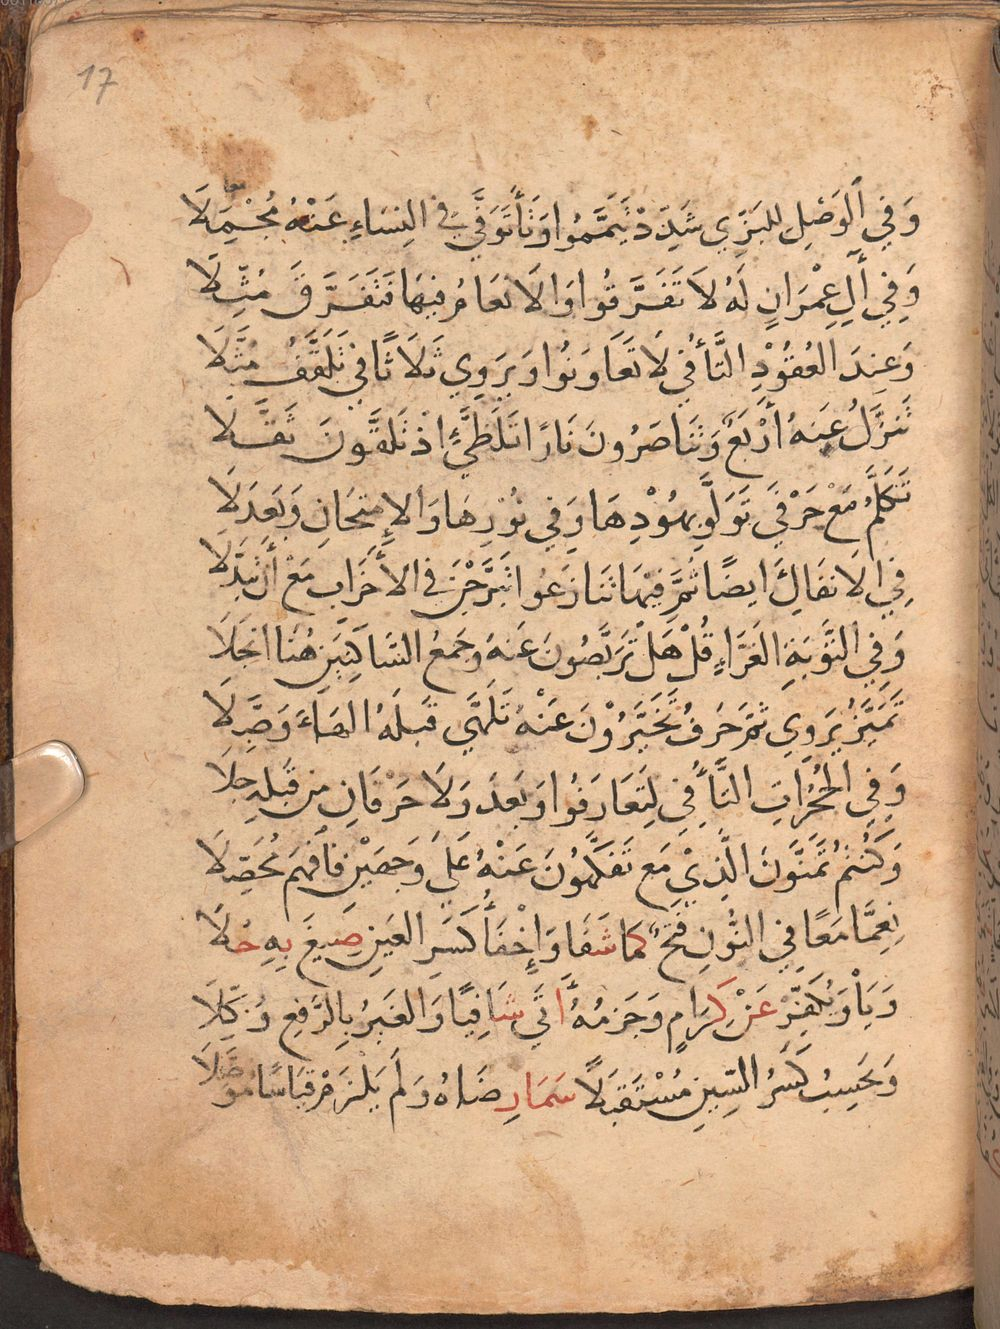 17
وَفِي الْوَصْلِ لِلْبَزِّي شَدِّدْ تَيَمَّمُوا وَتَا تَوَفَّى فِي النِسَاءِ عَنْهُ مُجْمِلَا
وَفِي آلِ عِمْرَانٍ لَهُ لَا تَفَرَّقُوا وَالَانعَامُ فِيهَا فَتَفَرَّقَ مُثِّلَا
وَعِندَ العُقُوْدِ التَّاءُ فِي لَا تَعَاوَنُوا وَيَروِي ثَلَاثًا فِي تَلَقَّفُ مُثَّلَا
تَنَزَّلُ عَنهُ أَرْبَعٌ وَتَنَاصَرُونَ نَارًا تَلَظَّى إِذ تَلَقَّونَ ثَقَّلَا
تَكَلَّمُ مَعْ حَرْفَي تَوَلَّو بِهُوْدِهَا وَفِي نُورِهَا وَالإِمتِحَانِ وَبَعدَ لَا
فِي الَانفَالِ أَيضًا ثُمَّ فِيْهَا تَنَازَعُوا تَبَرَّجْنَ فِي الأَحْزَابِ مَعْ أَنْ تَبَدَّلَا
وَفِي التَّوبَةِ الغَرَّاءِ قُلْ هَلْ تَرَبَّصُونَ عَنهُ وَجَمعُ السَّاكِنَينِ هُنَا انجَلَا
تَمَيَّزُ يَروِي ثُمَّ حَرفُ تَخَيَّرُوْنَ عَنْهُ تَلَهَّى قَبلَهُ الهَاءَ وَصَّلَا
وَفِي الحُجُرَاتِ التَّاءُ فِي لِتَعَارَفُوا وَبَعدَ وَلَا حَرْفَانِ مِن قَبلِهِ جَلَا
وَكُنتُمْ تَمَنَّونَ الَّذِيْ مَع تَفَكَّهُونَ عَنْهُ عَلَى وَجهَيْنِ فَافهَم مُحَصِّلَا
نِعِمَّا مَعًا فِي النُّونِ فَتحٌ كَمَا شَفَا وَإِخْفَاءُ كَسرِ العَينِ صِيغَ بِهِ حُلَا
وَيَا وَيُكَفِّرْ عَنْ كِرَامٍ وَجَزمُهُ أَتَى شَافِيًا وَالغَيرُ بِالرَّفعِ وُكِّلَا
وَيَحسِبُ كَسرُ السِّينِ مُسْتَقبَلًا سَمَا رِضَاهُ وَلَم يَلزَمْ قِيَاسًا مُؤَصَّلَا